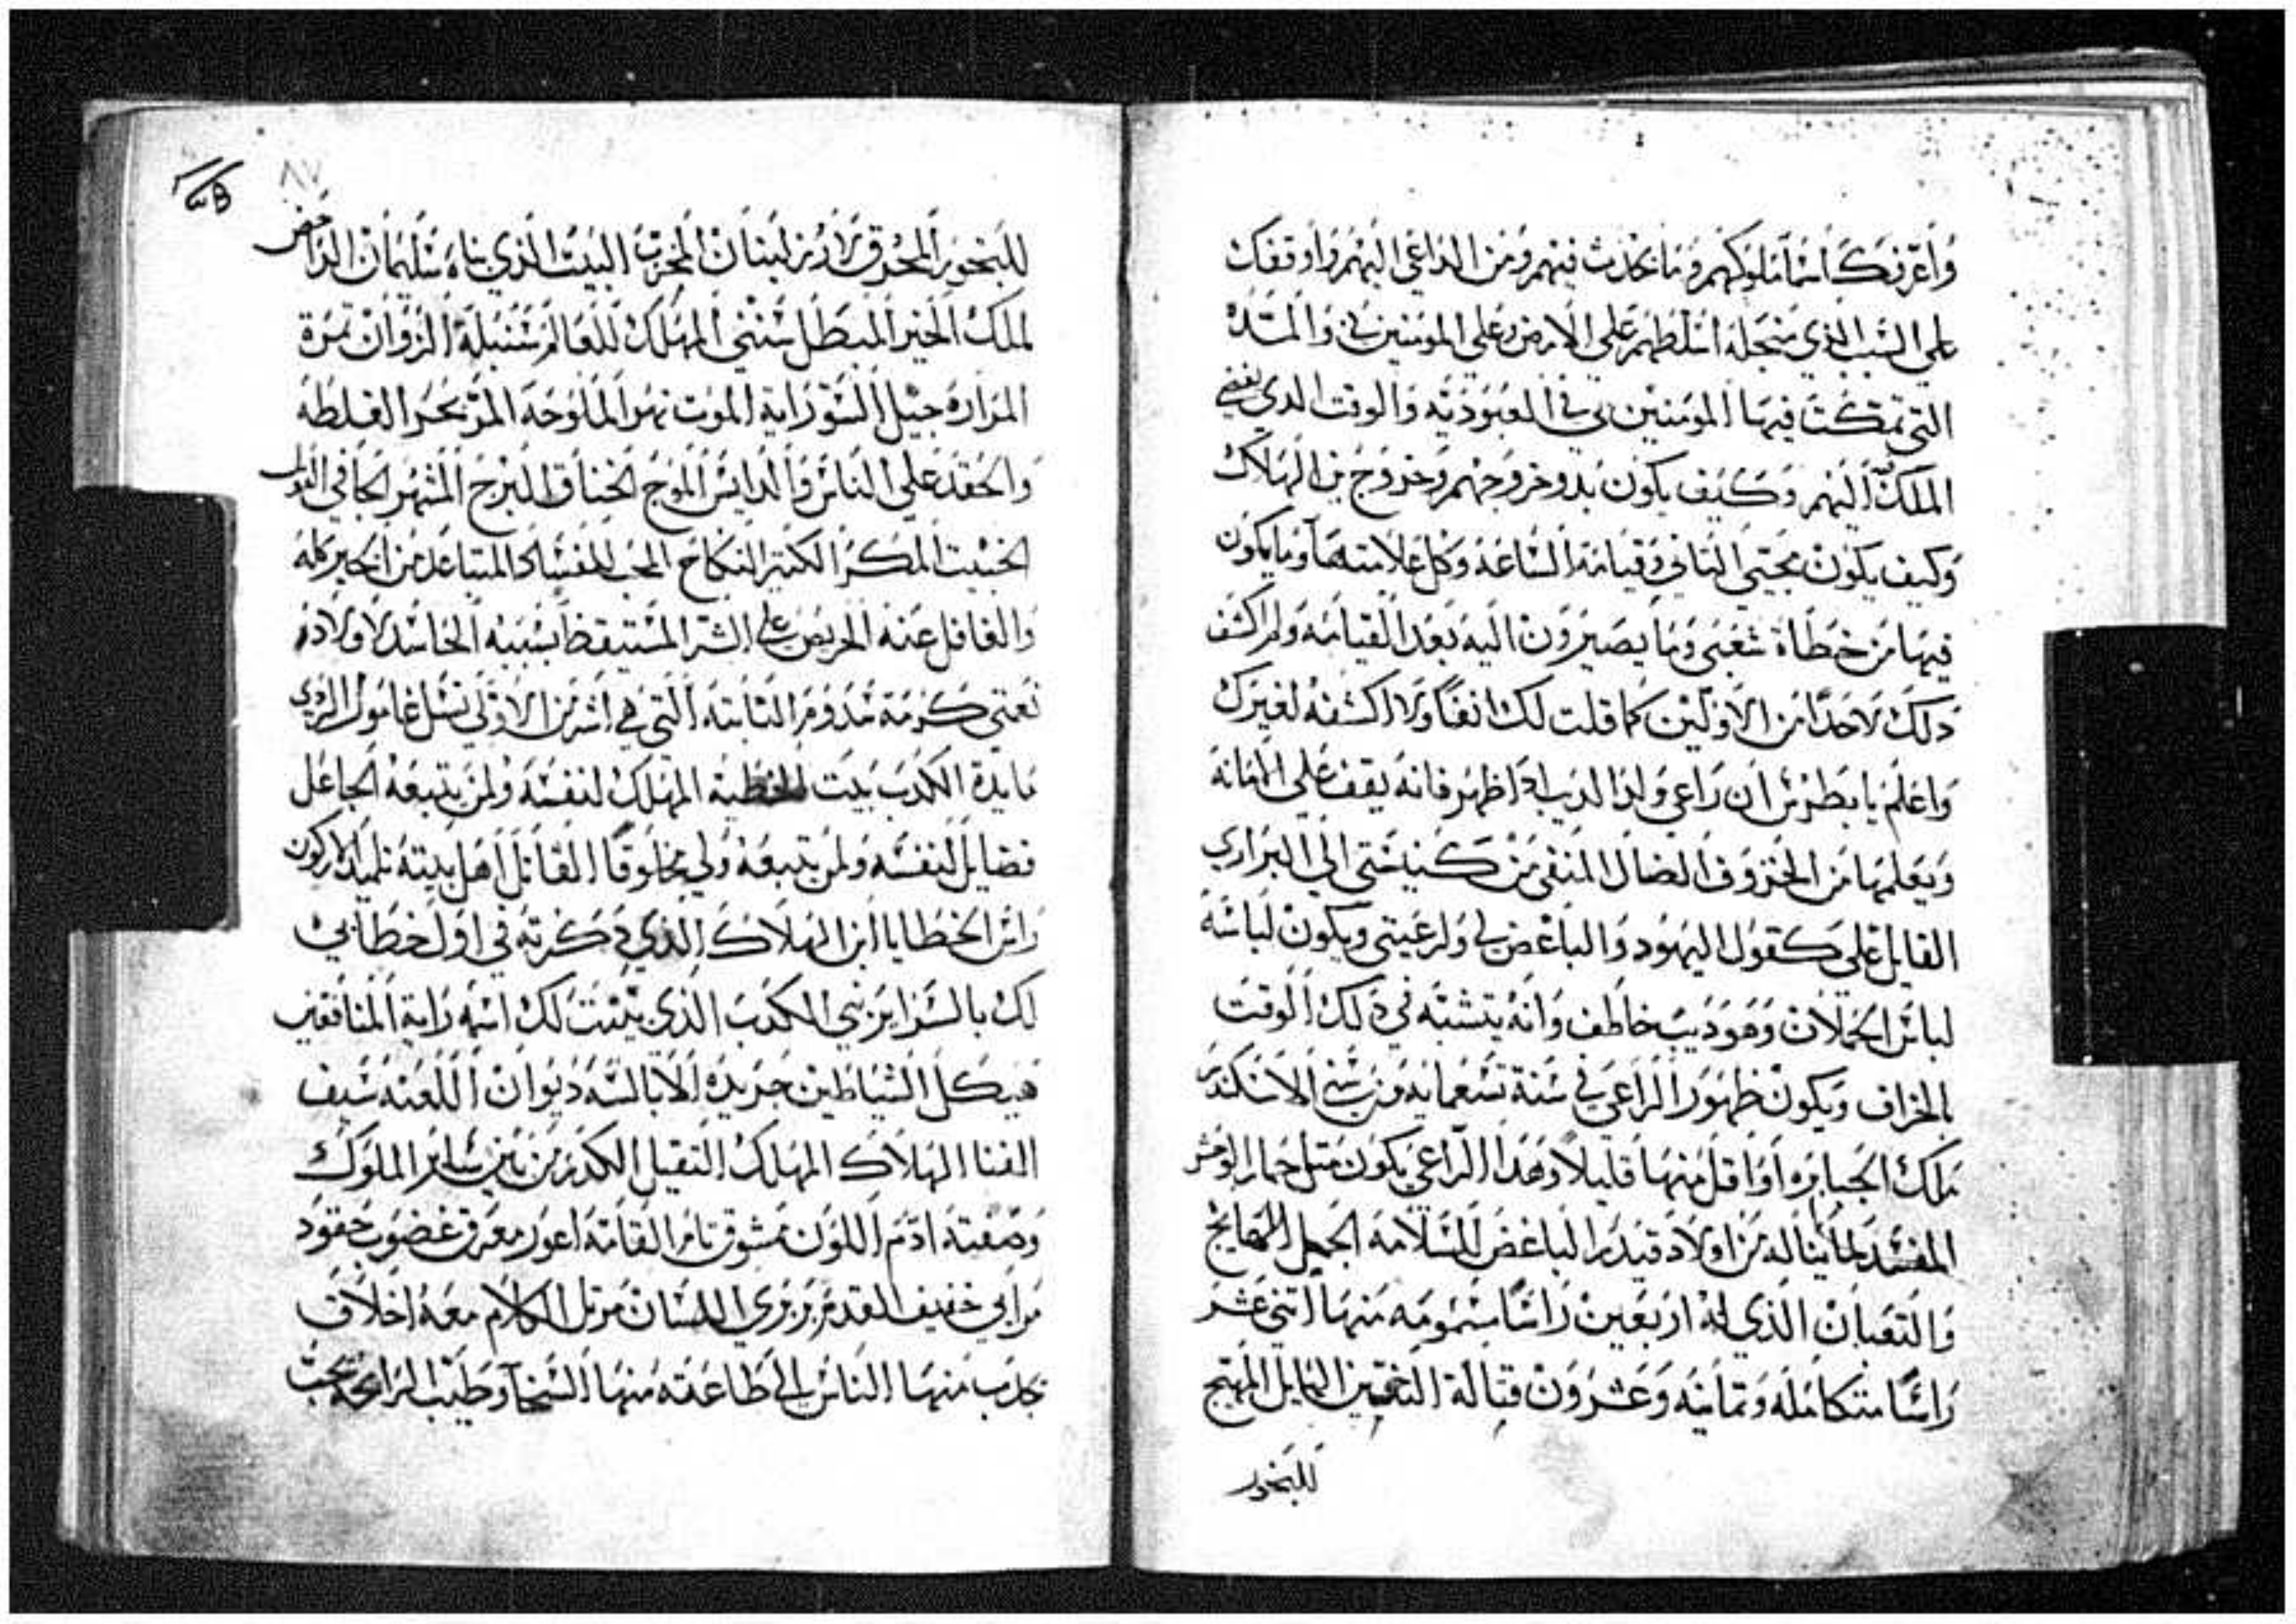 واعرفك اسما ملوكهم وما يحدث فيهم ومن الداعي اليهم واوقفك
علي السبب الذي منجله اسلطهم علي الارض وعلي المومنين بي والمده
التي تمكث فيها المومنين بي في العبوديه والوقت الدي يفضي
الملك اليهم وكيف يكون بدو خروجهم وخروج بن الهلاك
وكيف يكون مجيي التاني وقيامة الساعه وكل علامتها وما يكون
فيها من خطاة شعبي وما يصيرون اليه بعد القيامه ولم اكشف
دلك لاحدا من الاولين كما قلت لك انفا ولا اكشفه لغيرك
واعلم يا بطرس ان راعي ولد الديب ادا ظهر فانه يقف علي الامانه
ويعلمها من الخروف الضال المنفي من كنيستي الي البراري
القايل علي كقول اليهود والباغض لي ولرعيتي ويكون لباسه
لباس الحملان وهو ديب خاطف وانه يتشبه في دلك الوقت
بالخراف ويكون ظهور الراعي في سنة تسعمايه من سني الاسكندر
ملك الجبابره او اقل منها قليلا وهذا الراعي يكون متل حمار الوحش
المفسد لما يناله من اولاد قيدر الباغض السلامه الجمل الهايج
والتعبان الذي له اربعين راسا مسمومه منها اتني عشر
راسا متكامله وتمانيه وعشرون قتالة التنين الهايل المهتج
للبخور
٨٧
للبخور المحرق لارز لبنان المخرب البيت الذي بناه سليمان الرافض
لملك الخير المبطل سنني المهلك للعالم سنبلة الزوان تمرة
المراره جبل السو راية الموت نهر الملوحه المر بحر الغلطه
والحقد علي الناس والدايس الموج الخناق البرج المشهر الجافي القول
الخبيت المكر الكتير النكاح المحب للفساد المتباعد من الخير كله
والغافل عنه الحريص علي الشر المستيقظ بسببه الحاسد لاولاده
نعني كرمة سدوم التابته التي في اشر من الاولي نسل عامول الردي
مايدة الكدب بيت الخطيه المهلك لنفسه ولمن يتبعه الجاعل
فضايل لنفسه ولمن يتبعه ولي مخلوقا القاتل اهل بيته تلميد الاركون
راس الخطايا ابن الهلاك الذي دكرته في اول خطابي
لك بالسراير نبي الكدب الذي بينت لك اسمه راية المنافقين
هيكل الشياطين جريدة الابالسه ديوان اللعنه سيف
الفنا الهلاك المهلك التقيل الكدر من بين ساير الملوك
وصفته ادم اللون مشوق تام القامه اعور معرق غضوب حقود
مرابي خفيف القدم بربري اللسان مرتل الكلام معه اخلاق
يجدب منها الناس الي طاعته منها السخا وطيب الرايحه يحب